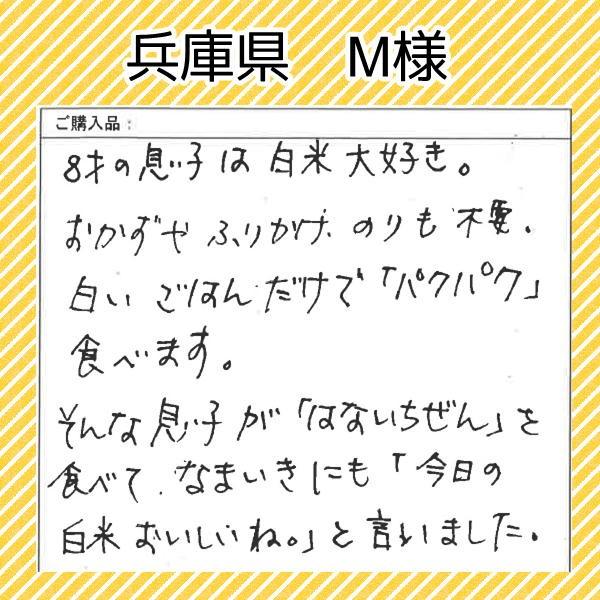 兵庫県　M様
ご購入品：
8才の息子は白米大好き。
おかずやふりかけ、のりも不要。
白いごはんだけで「パクパク」
食べます。
そんな息子が「はないちぜん」を
食べて、なまいきにも「今日の
白米おいしいね。」と言いました。